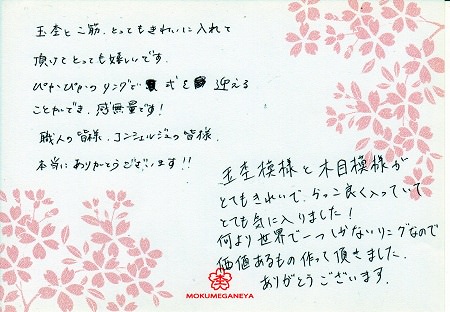 玉杢と二筋、とってもきれいに入れて
頂けてとっても嬉しいです。
ぴかぴかのリングで式を迎える
ことができ、感無量です!
職人の皆様、コンシェルジュの皆様、
本当にありがとうございます!!
玉杢模様と木目模様が
とてもきれいで、かっこ良く入っていて
とても気に入りました!
何より世界で一つしかないリングなので
価値あるもの作って頂きました。
ありがとうございます。
MOKUMEGANEYA